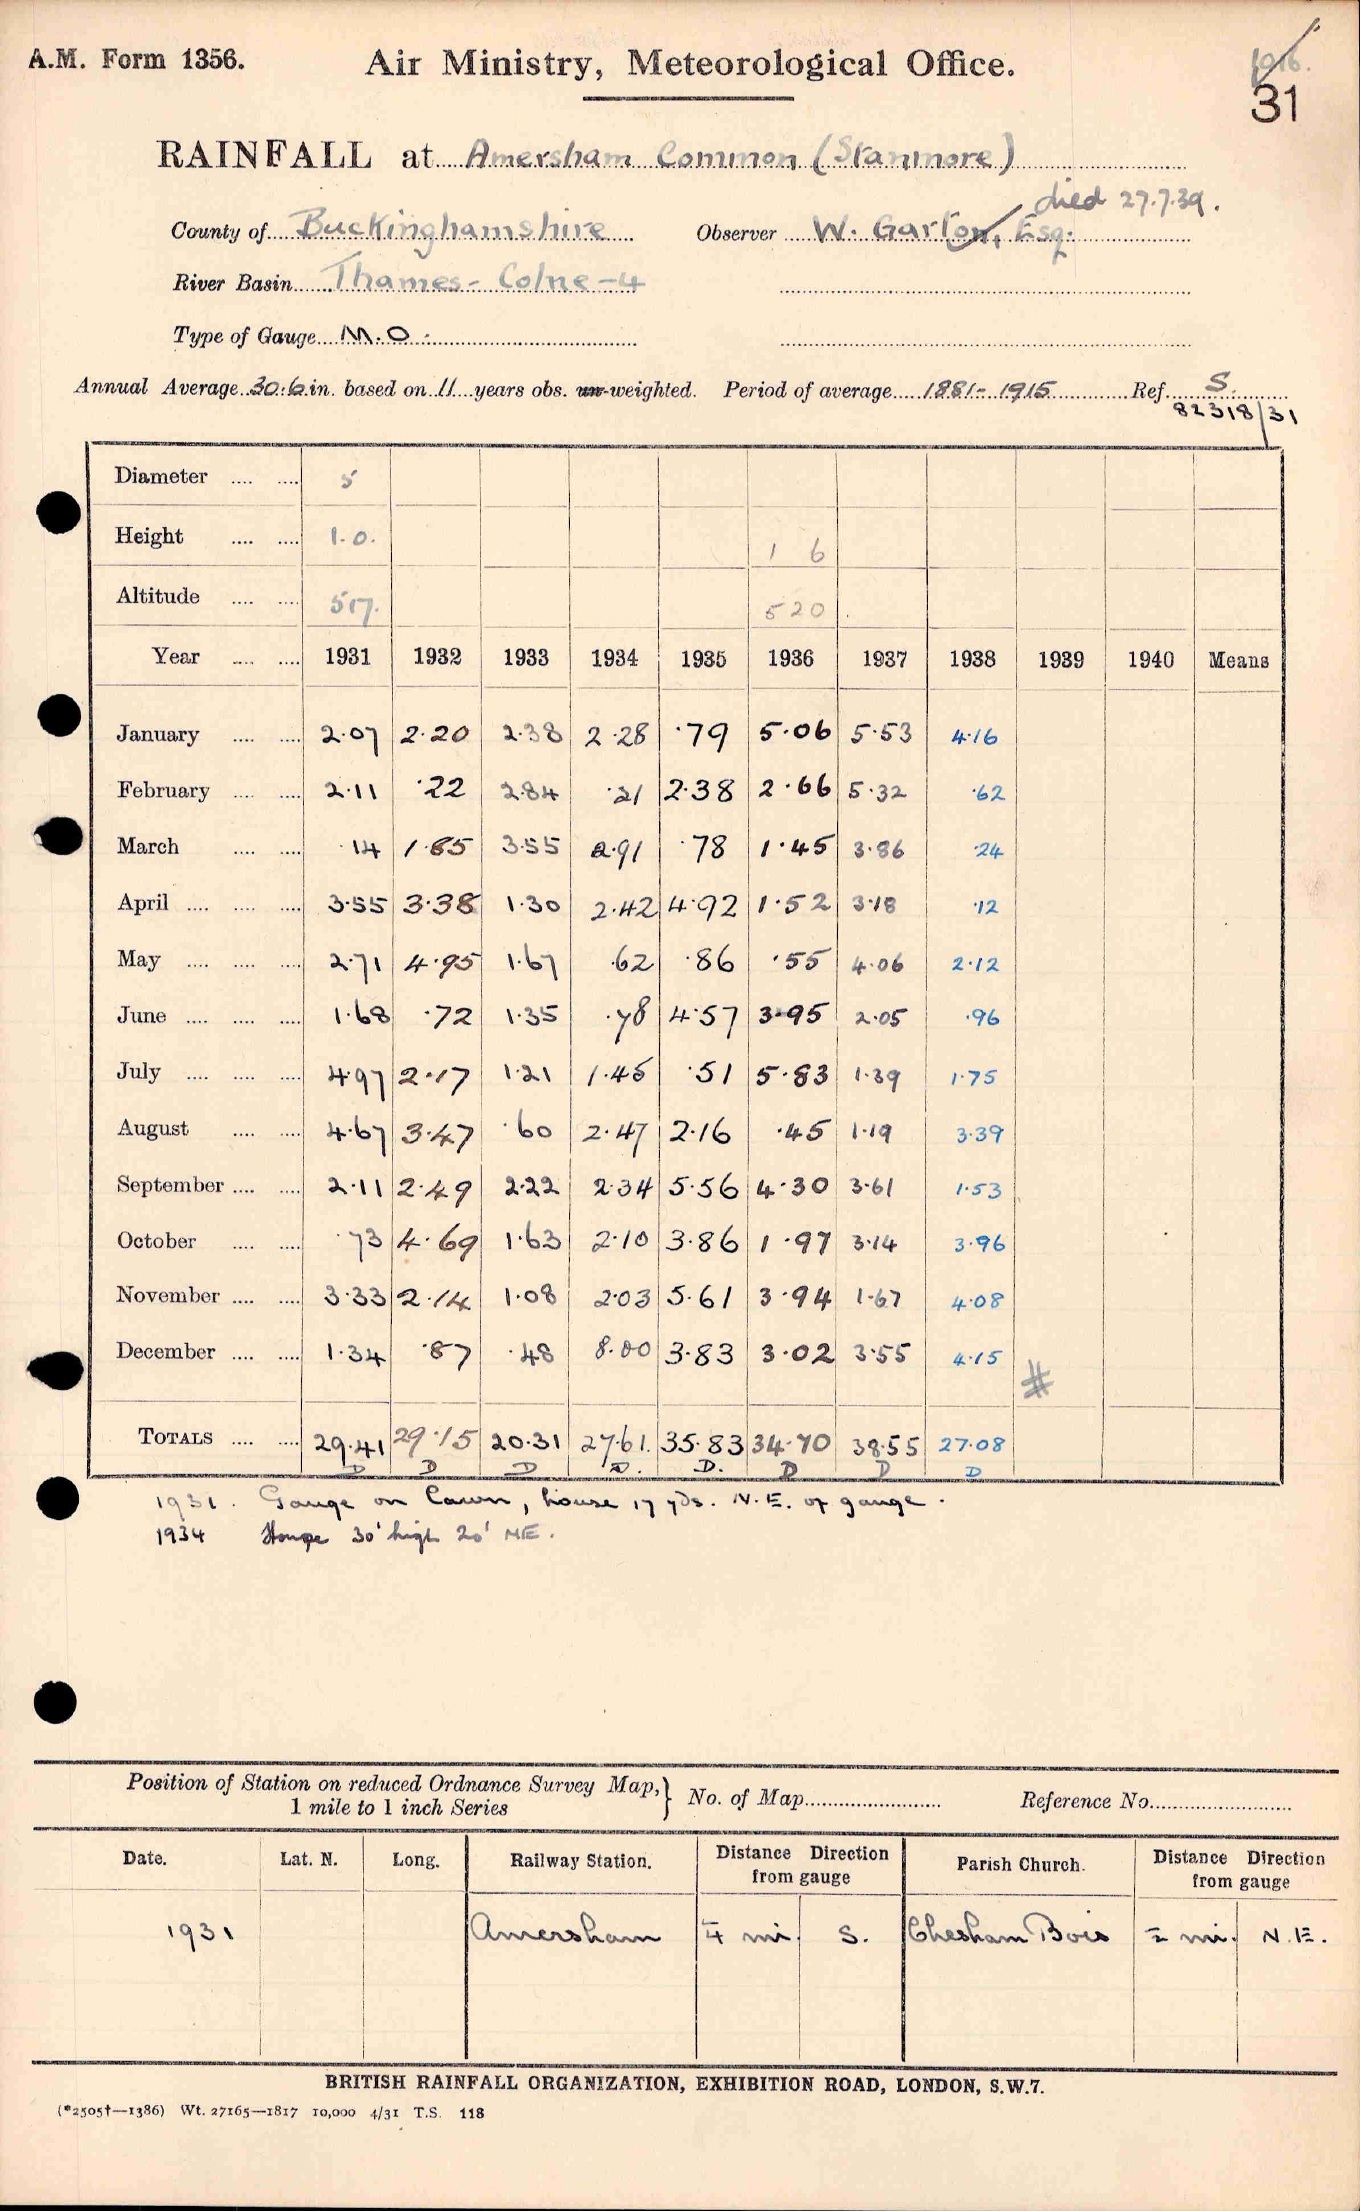 A.M. Form 1356.
Air Ministry, Meteorological Office.
31
RAINFALL at Amersham Common (Stanmore)
died 27.7.39.
County of Buckinghamshire Observer W. Garton, Esq.
River Basin Thames - Colne - 4
Type of Gauge M.O.
Annual Average 30.6 in. based on 11 years obs. un-weighted. Period of average 1881-1915 Ref. S.
82318/31
Diameter .... .... 5
Height .... .... 1.0. 1 6
Altitude .... .... 517. 520
Year .... .... 1931 1932 1933 1934 1935 1936 1937 1938 1939 1940 Means
January .... .... 2.07 2.20 2.38 2.28 .79 5.06 5.53 4.16
February .... .... 2.11 .22 2.84 .21 2.38 2.66 5.32 .62
March .... .... .14 1.85 3.55 2.91 .78 1.45 3.86 .24
April .... .... .... 3.55 3.38 1.30 2.42 4.92 1.52 3.18 .12
May .... .... .... 2.71 4.95 1.67 .62 .86 .55 4.06 2.12
June .... .... .... 1.68 .72 1.35 .78 4.57 3.95 2.05 .96
July .... .... .... 4.97 2.17 1.21 1.45 .51 5.83 1.39 1.75
August .... .... 4.67 3.47 .60 2.47 2.16 .45 1.19 3.39
September .... .... 2.11 2.49 2.22 2.34 5.56 4.30 3.61 1.53
October .... .... .73 4.69 1.63 2.10 3.86 1.97 3.14 3.96
November .... .... 3.33 2.14 1.08 2.03 5.61 3.94 1.67 4.08
December .... .... 1.34 .87 .48 8.00 3.83 3.02 3.55 4.15 #
TOTALS .... .... 29.41 29.15 20.31 27.61. 35.83 34.70 38.55 27.08
D D D D. D. D D D
1931. Gauge on Lawn, house 17 yds. N.E. of gauge.
1934 House 30' high 20' NE.
Position of Station on reduced Ordnance Survey Map, } No. of Map Reference No.
1 mile to 1 inch Series
Date. Lat. N. Long. Railway Station. Distance Direction from gauge Parish Church. Distance Direction from gauge
1931 Amersham mi. S. Chesham Bois mi. N.E.
BRITISH RAINFALL ORGANIZATION, EXHIBITION ROAD, LONDON, S.W.7.
(*2505†—1386) Wt. 27165—1817 10,000 4/31 T.S. 118